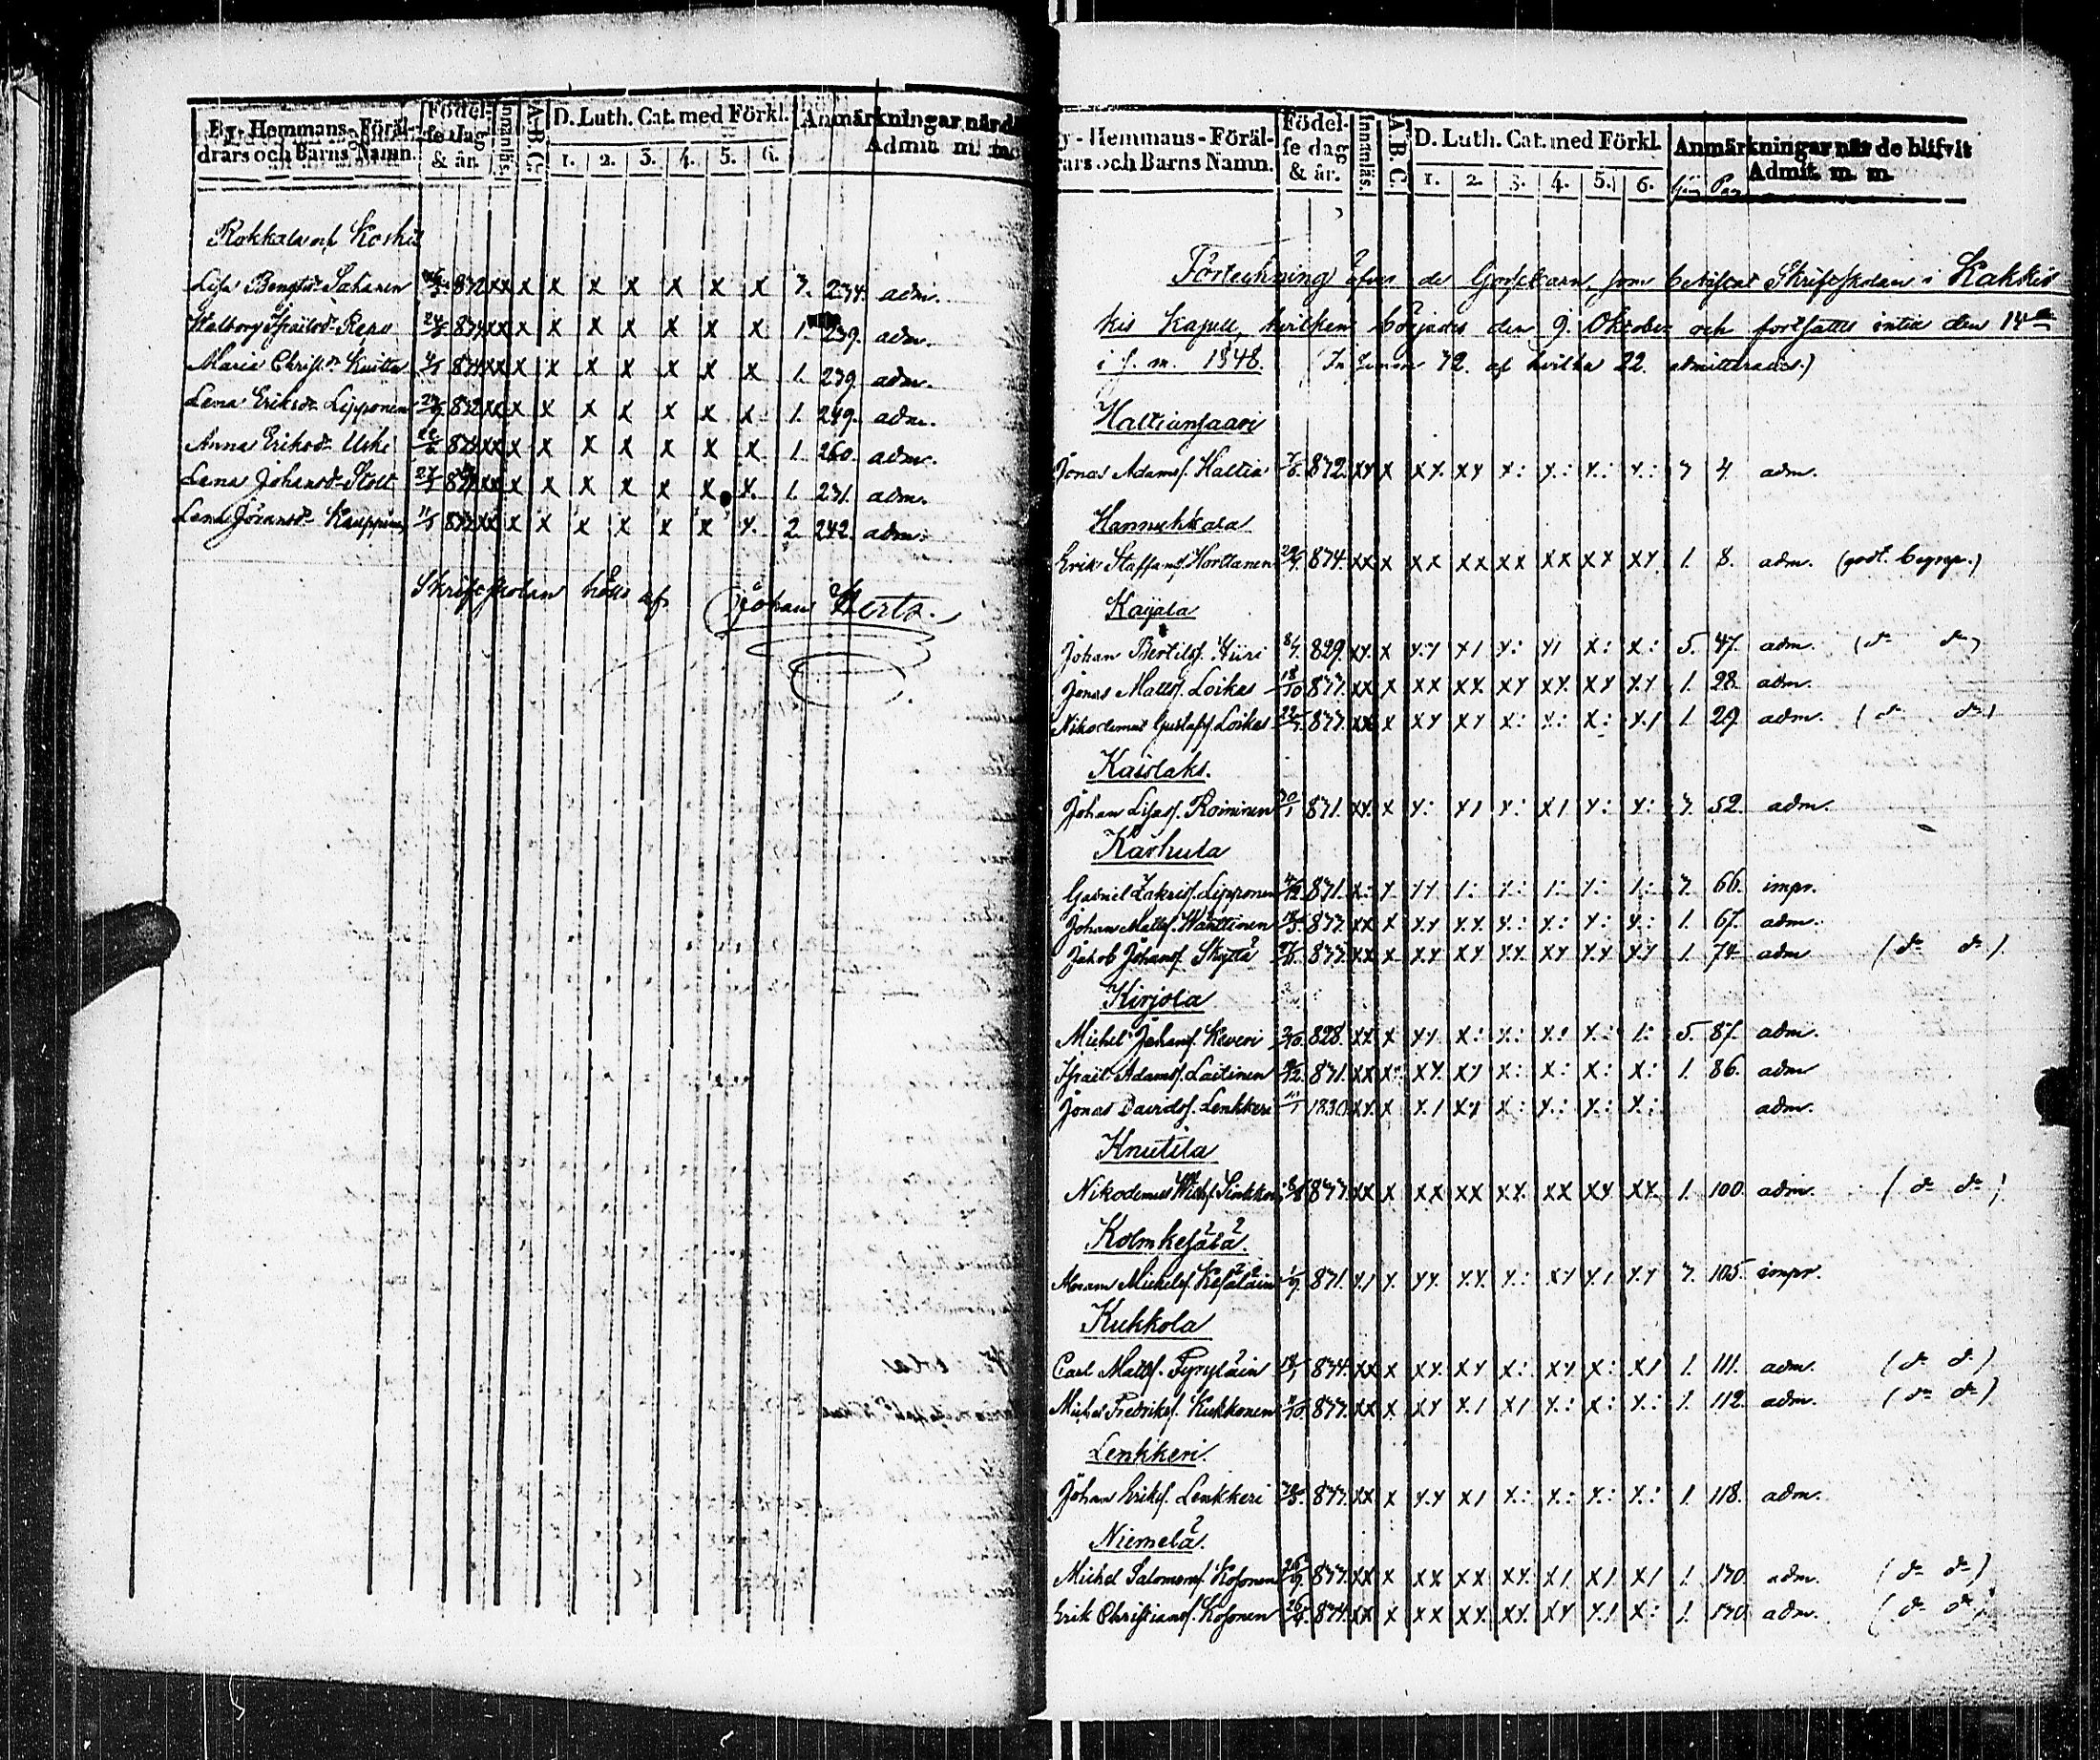 By-Hemmans-Föräl-
drars och Barns Namn.
Födel-
se dag
& år.
Innanläs.
A.B.C.
D. Luth. Cat. med Förkl.
1. 2. 3. 4. 5. 6.
Anmärkningar när de
Admit. m. m.
Rokkala och Koskis
Lisa Bengtsd. Sahanen 832 xx x x x x x x x 3. 234. adm.
Walborg Israelsd. Repo xx x x x x x x x 1. 239. adm.
Maria Christ.d. Kuitto xx x x x x x x x 1. 239 adm.
Lena Eriksd. Lipponen 832 xx x x x x x x x 1. 249. adm.
Anna Eriksd. Uski xx x x x x x x x 1. 260. adm.
Lena Johansd. Stolt xx x x x x x x x. 1. 231. adm.
Lena Johansd. Kauppinen xx x x x x x x x. 2. 242. adm.
Skriftskolan hölls af Johan Herts.
By-Hemmans-Föräl-
drars och Barns Namn.
Födel-
se dag
& år.
Innanläs.
A.B.C.
D. Luth. Cat. med Förkl.
1. 2. 3. 4. 5. 6.
Anmärkningar när de blifvit
Admit. m. m.
Gång Pag.
Förteckning öfver de Gossebarn, som bevistat Skriftskolan i Kakkis
kis Kapell, hvilken börjades den 9. Oktober och fortsattes intill den 14de
i s. m. 1848. (In summa 72. af hvilka 22. admitterades.)
Haltiansaari
Jonas Adamss. Haltia 832. xx x xx xx x: x: x: x: 3 4. adm.
Hannukkala
Erik Staffanss. Horttanen 834. xx x xx xx xx xx xx xx 1. 8. adm. (godt begrep.)
Kaijala
Johan Bertilss. Hiiri 8/7. 829. xx x xx x/ x: x/ x: x: 5. 47. adm. (do do)
Jonas Matts. Loikas 18/10 833. xx x xx xx xx xx xx xx 1. 28. adm.
Nikodemus Gustafss. Loikas 833. xx x xx xx x: x: x: x/ 1. 29. adm. (do do)
Kaislaks.
Johan Lisass. Roininen 831. xx x x: x/ x: x/ x: x: 3. 52. adm.
Karhula
Gabriel Zakriss. Lipponen 4/12 831. x: x. /x /: x: /: x: /: 3. 66. impr.
Johan Matts. Wänttinen 833. xx x xx xx x: x: x: x: 1. 67. adm.
Jakob Johanss. Skyttä 833. xx x xx xx xx xx xx xx 1. 74 adm (do do)
Kirjola
Michel Johanss. Keveri 828. xx x xx x: x: x: x: /: 5. 87. adm.
Israel Adamss. Laitinen 831. xx x: xx xx x: x: x: x: 1. 86. adm
Jonas Davidss. Lenkkeri 1830. xx x x/ xx x: x: x: x: adm.
Knutila
Nikodemus Mich.s. Sinkkonen 833. xx x xx xx xx xx xx xx 1. 100. adm. (do do)
Kolmkesälä.
Abram Michelss. Kesäläin 1/9. 831. x/ x. xx xx x: xx x/ xx 3. 105. impr.
Kukkola
Carl Matts. Pyryläin 834. xx x xx xx x: xx x: x/ 1. 111. adm. (do do)
Michel Fredrikss. Kukkonen 833. xx x xx x/ x/ x: x: x: 1. 112. adm. (do do)
Lenkkeri.
Johan Eriks. Lenkkeri 833. xx x xx x/ x: x: x: x: 1. 118. adm.
Niemelä.
Michel Salomons. Kosonen 26/9. 833. xx x xx xx xx x/ x/ x/ 1. 130. adm. (do do)
Erik Christianss. Kosonen 834. xx x xx xx xx xx x/ x: 1. 130. adm. (do do)